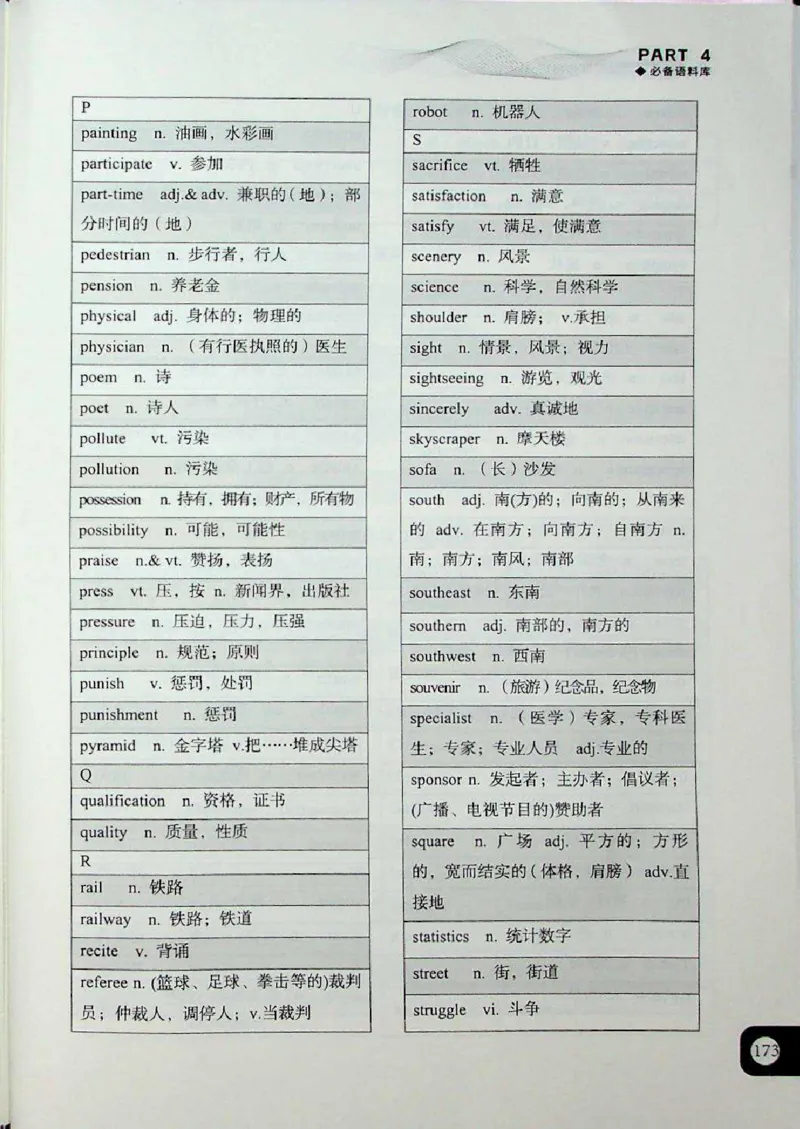 PART 4
◆ 必备语料库
P
painting n. 油画，水彩画
participate v. 参加
part-time adj.& adv. 兼职的（地）；部
分时间的（地）
pedestrian n. 步行者，行人
pension n. 养老金
physical adj. 身体的；物理的
physician n. （有行医执照的）医生
poem n. 诗
poet n. 诗人
pollute vt. 污染
pollution n. 污染
possession n. 持有，拥有；财产，所有物
possibility n. 可能，可能性
praise n.& vt. 赞扬，表扬
press vt. 压，按 n. 新闻界，出版社
pressure n. 压迫，压力，压强
principle n. 规范；原则
punish v. 惩罚，处罚
punishment n. 惩罚
pyramid n. 金字塔 v.把……堆成尖塔
Q
qualification n. 资格，证书
quality n. 质量，性质
R
rail n. 铁路
railway n. 铁路；铁道
recite v. 背诵
referee n. (篮球、足球、拳击等的)裁判
员；仲裁人，调停人；v.当裁判
robot n. 机器人
S
sacrifice vt. 牺牲
satisfaction n. 满意
satisfy vt. 满足，使满意
scenery n. 风景
science n. 科学，自然科学
shoulder n. 肩膀； v.承担
sight n. 情景，风景；视力
sightseeing n. 游览，观光
sincerely adv. 真诚地
skyscraper n. 摩天楼
sofa n. （长）沙发
south adj. 南(方)的；向南的；从南来
的 adv. 在南方；向南方；自南方 n.
南；南方；南风；南部
southeast n. 东南
southern adj. 南部的，南方的
southwest n. 西南
souvenir n. （旅游）纪念品，纪念物
specialist n. （医学）专家，专科医
生；专家；专业人员 adj.专业的
sponsor n. 发起者；主办者；倡议者；
(广播、电视节目的)赞助者
square n. 广场 adj. 平方的；方形
的，宽而结实的（体格，肩膀） adv.直
接地
statistics n. 统计数字
street n. 街，街道
struggle vi. 斗争
173